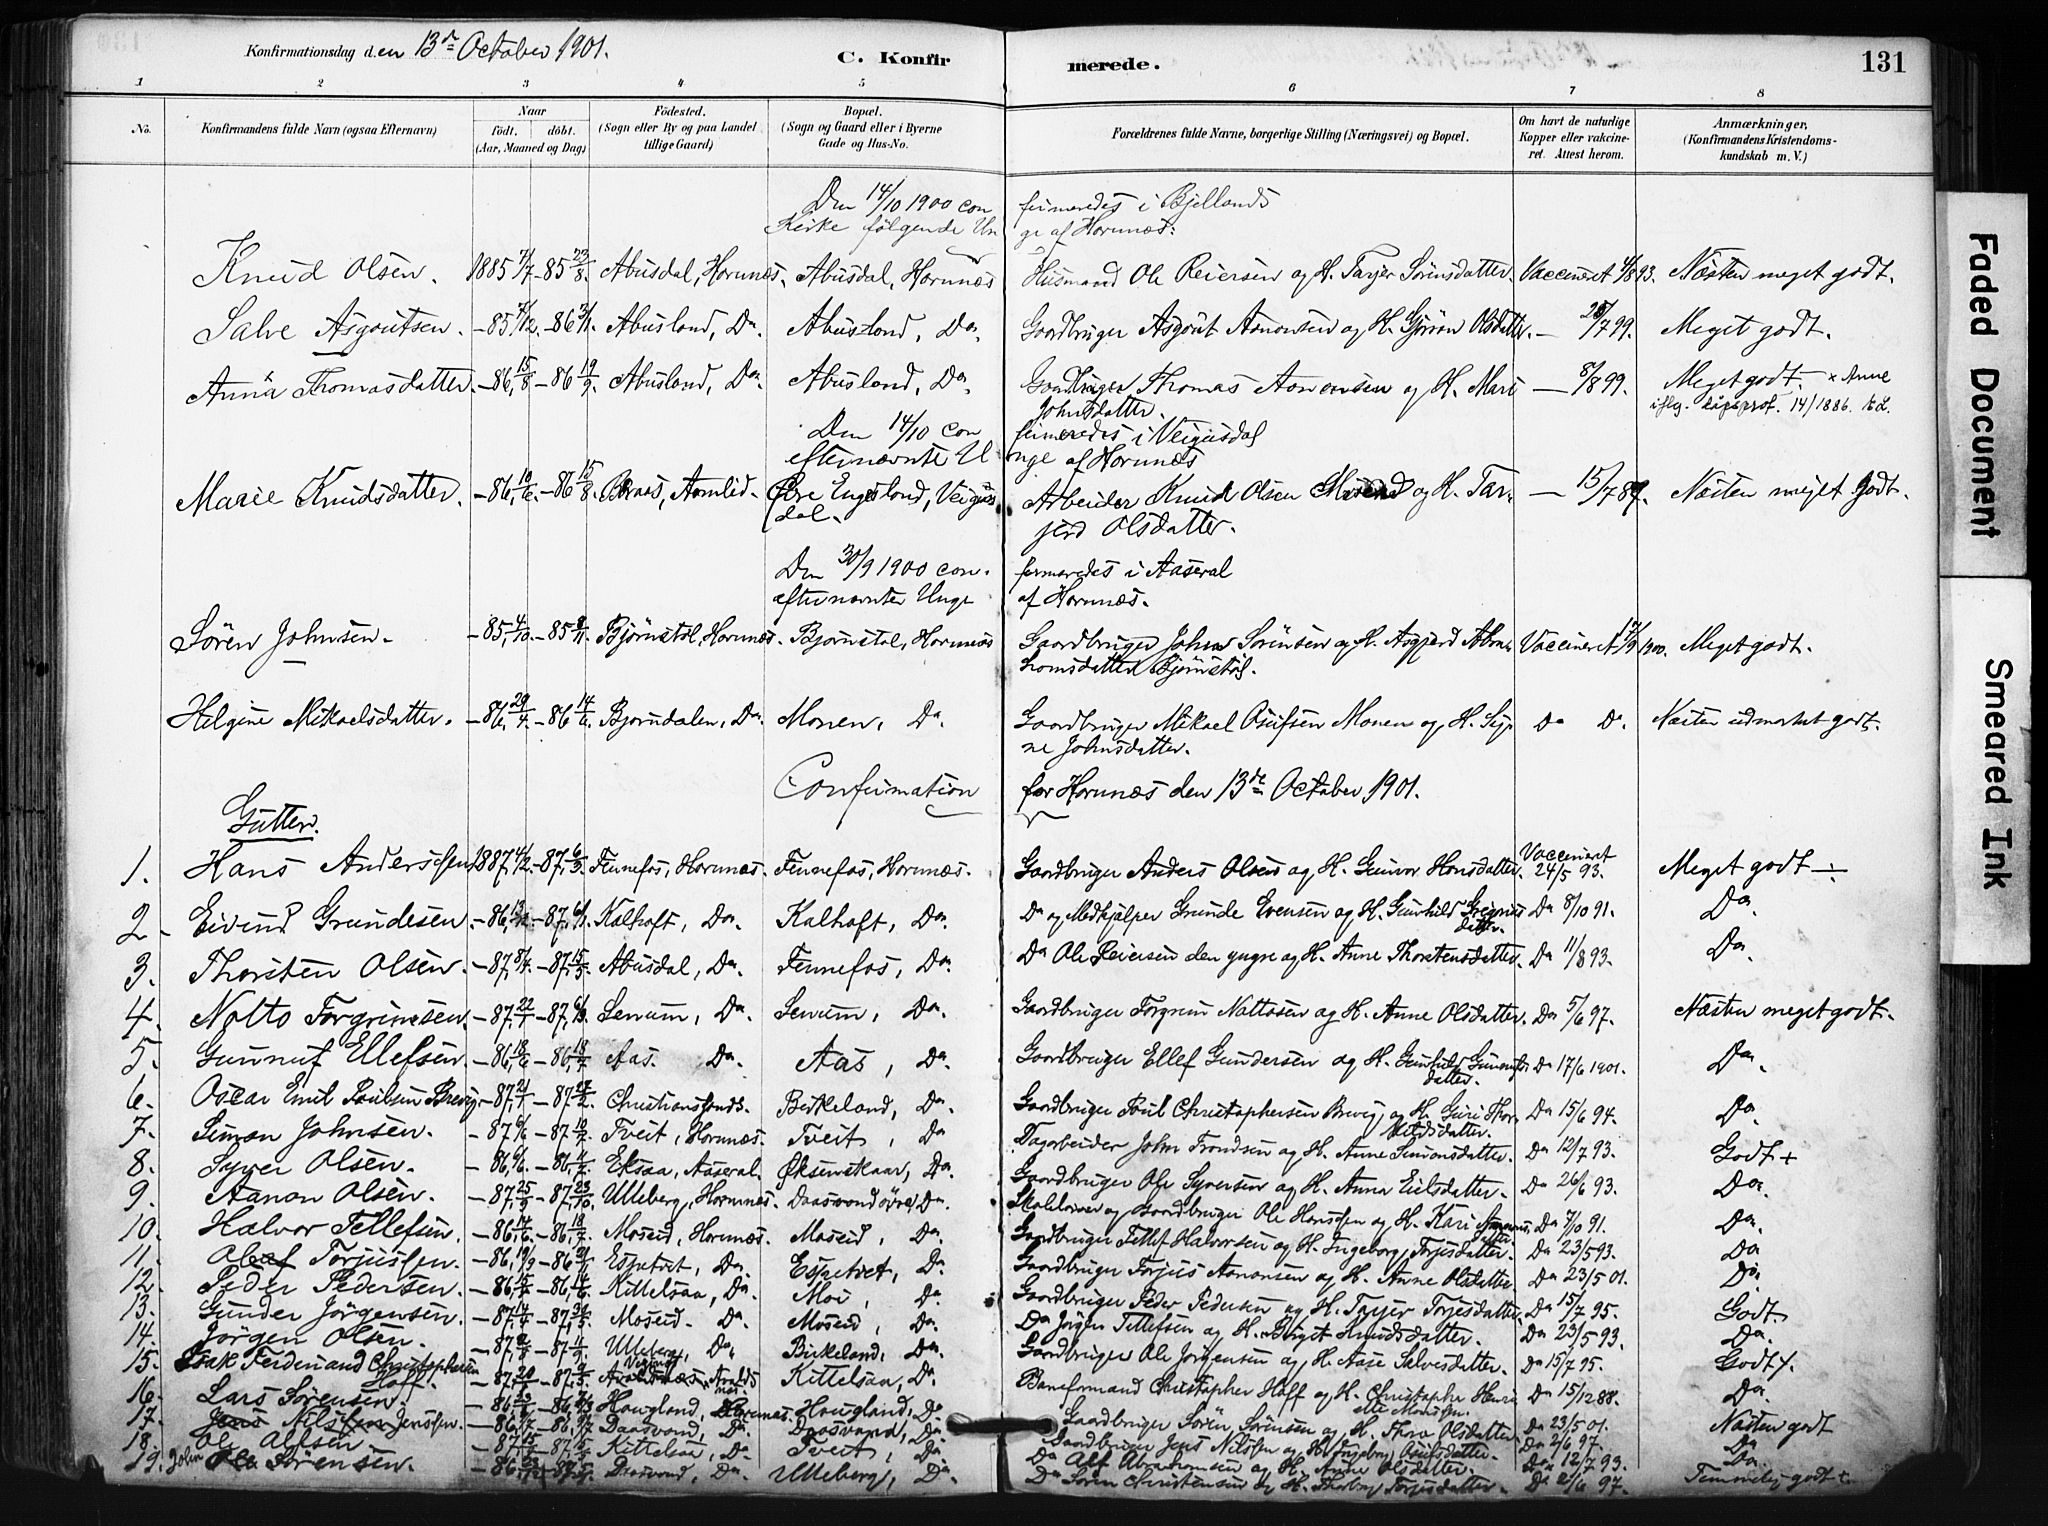 Konfirmationsdag d.en 13de October 1901.
C. Konfirmerede.
131
1 2 3 4 5 6 7 8
No. Konfirmandens fulde Navn (ogsaa Efternavn) Naar født. døbt. (Aar, Maaned og Dag) Fødested. (Sogn eller By og paa Landet tillige Gaard) Bopæl. (Sogn og Gaard eller i Byerne Gade og Hus-No. Forældrenes fulde Navne, borgerlige Stilling (Næringsvei) og Bopæl. Om havt de naturlige Kopper eller vakcineret. Attest herom. Anmærkninger, (Konfirmandens Kristendomskundskab m. V.)
Den 14/10 1900 confirmeredes i Bjellands
Kirke følgende Unge af Hornnæs:
Knud Olsen. 1885 7/7 -85 23/8. Abusdal, Hornnæs. Abusdal, Hornnæs Husmand Ole Reiersen og H. Tarjer Sørensdatter. Vaccineret 4/8 93. Næsten meget godt.
Salve Asgoutsen. -85 7/12. -86 3/1. Abusland, Do. Abusland, Do. Gaardbruger Asgout Aanonsen og H. Gjøron Olsdatter. — 26/7 99. Meget godt.
Anna Thomasdatter. -86, 15/8 -86 19/9. Abusland, Do. Abusland, Do. Gaardbruger Thomas Aanonsen og H. Mari — 8/8 99. Meget godt. x Anne
Johnsdatter. iflg. dåpsprot. 14/1886.
Den 14/10 confirmeredes i Veigusdal
efternævnte Unge af Hornnæs
Marie Knudsdatter. -86, 10/6. -86 15/8. Aamlid. Øvre Engesland, Veigusdal. Arbeider Knud Olsen og H. Tar- — 15/7 89. Næsten meget godt.
jerd Olsdatter.
Den 30/9 1900 confirmeredes i Aaseral
efternævnte Unge af Hornnæs.
Søren Johnsen. -85, 4/10. -85 8/11. Bjørnstøl, Hornnæs. Bjørnstøl, Hornnæs Gaardbruger John Sørensen og H. Asgjerd Abra- Vaccineret 17/9 1900. Meget godt.
hamsdatter Bjørnstøl.
Helgine Mikaelsdatter. -86, 29/4. -86 14/6. Bjørndalen, Do. Monen, Do. Gaardbruger Mikael Osufsen Monen og H. Sig- Do Do. Næsten udmærket godt.
ne Johnsdatter.
Confirmation for Hornnæs den 13de October 1901.
Gutter.
1. Hans Anderssen 1887, 4/2. -87, 6/3. Fennefos, Hornnæs. Fennefos, Hornnæs. Gaardbruger Anders Olsen og H. Gunvor Hansdatter. Vaccineret 24/5 93. Meget godt ÷
2. Eivind Grundesen -86, 13/12 -87, 6/1. Kalhoft, Do. Kalhoft, Do. Do og Medhjælper Grunde Evensen og H. Gunhild Gregriusdatter. Do 8/10 91. Do.
3. Thorsten Olsen. -87, 8/4. -87, 15/5. Abusdal, Do. Fennefos, Do. Do Ole Reiersen den yngre og H. Anne Thorstensdatter. Do 11/8 93. Do.
4. Natto Torgrimsen. -87, 22/1 -87, Senum, Do. Senum, Do. Gaardbruger Torgrim Nattosen og H. Anne Olsdatter. Do 5/6 97. Næsten meget godt.
5. Gunnuf Ellefsen. -86, 18/6 -86, 18/7 Aas. Do. Aas, Do. Gaardbruger Ellef Gundersen og H. Gunhild Gunnufsdatter. Do 17/6 1901. Do.
6. Oscar Emil Poulsen Brevig. -87, 21/1 -87, 27/2. Christianssands. Birkeland, Do. Gaardbruger Poul Christophersen Brevig og H. Guri Thormodsdatter. Do 15/6 94. Do.
7. Simon Johnsen. -87, 6/6 -87, 10/7. Tveit, Hornnæs. Tveit, Do Dagarbeider John Trondsen og H. Anne Simonsdatter. Do 12/7 93. Godt +
8. Syver Olsen. -86, 6/6. -86, 11/7. Eksaa, Aaseral. Øksenskaar, Do. Gaardbruger Ole Syversen og H. Anna Eilsdatter. Do 26/6 93. Do.
9. Aanon Olsen. -87, 25/9 -87, 23/10. Ulleberg, Hornnæs. Daasvand øvre, Do. Skolelærer og Gaardbruger Ole Hanssen og H. Kari Do 7/10 91. Do.
10. Halvor Tellefsen. -86, 14/6. -86, 18/7. Moseid, Hornnæs. Moseid, Do. Gaardbruger Tellef Halvorsen og H. Ingeborg Torjesdatter. Do 23/5 93. Do
11. Torjussen. -86, 19/9 -86 Espetvet, Do. Espetvet, Do. Gaardbruger Torjus Aanonsen og H. Anne Olsdatter. Do 23/5 01. Do.
12. Peder Pedersen. -86, -86, Kittelsaa, Do. Moi, Do. Gaardbruger Peder Pedersen og H. Tarjer Torjesdatter. Do 15/7 95. Godt.
13. Gunder Jørgensen. -87, 17/4 -87, Moseid. Do. Moseid, Do. Do Jørgen Tellefsen og H. Birget Knudsdatter. Do 23/5 93. Do.
14. Jørgen Olsen. -87, -87, Ulleberg, Do. Birkeland, Do. Gaardbruger Ole Jørgensen og H. Aase Salvesdatter. Do 15/7 95. Godt
15. Isak Ferdinand Christophersen Hoff. -87, 20/ -87, Kittelsaa, Do. Baneformand Christopher Hoff og H. Christopha Do 15/12 88. Do.
16. Lars Sørensen. -86 -86, Hougland, Hornnæs. Hougland, Do Gaardbruger Søren Sørensen og H. Thora Olsdatter. Do 23/5 01. Næsten godt
17. Jens Nilssen Jenssen. -86, -86, Daasvand, Do. Daasvand, Do. Gaardbruger Jens Nilssen og H. Ingeborg Do 2/6 97. Do
18. Ole Alfsen -87, -87, Kittelsaa, Do Tveit, Do. Do Alf Abrahamsen og H. Anne Olsdatter. Do 12/7 93. Do.
19. John Sørensen. -86, -87, Daasvand, Do. Ulleberg, Do. Do Søren Christensen og H. Torjesdatter. Do 2/6 97. Temmelig godt +
Faded Document
Smeared Ink